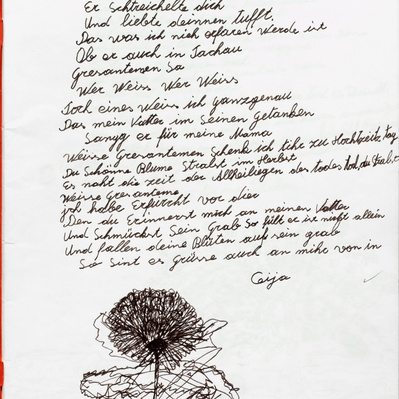 Er Schtreichelte dich
Und liebte deinnen tufft.
Das was ich nich erfaren werde ist
Ob er auch in Tachau
Gresantemen Sa
Wer Weiss Wer Weiss
Toch eines Weiss ich ganzgenau
Das mein Vatter im Seinen Getanken
Sanyg er für meine Mama
Weisse Gresantemen Schenk ich tihr zu Hochtzeits tag
Du Schönne Blume Strabst im Herbst
Es naht die zeit der Allheiliegen des todes tod, du Strabst
Weisse Gresanteme
ich halbe Erfürcht vor dier
Den du Erinnerst mich an meinen Vatter
Und Schmückst Sein Grab So fült er ist nicht allein
Und fallen deine Blüten auf sein grab
So Sint es Grüsse auch an mihr von in
Ceija